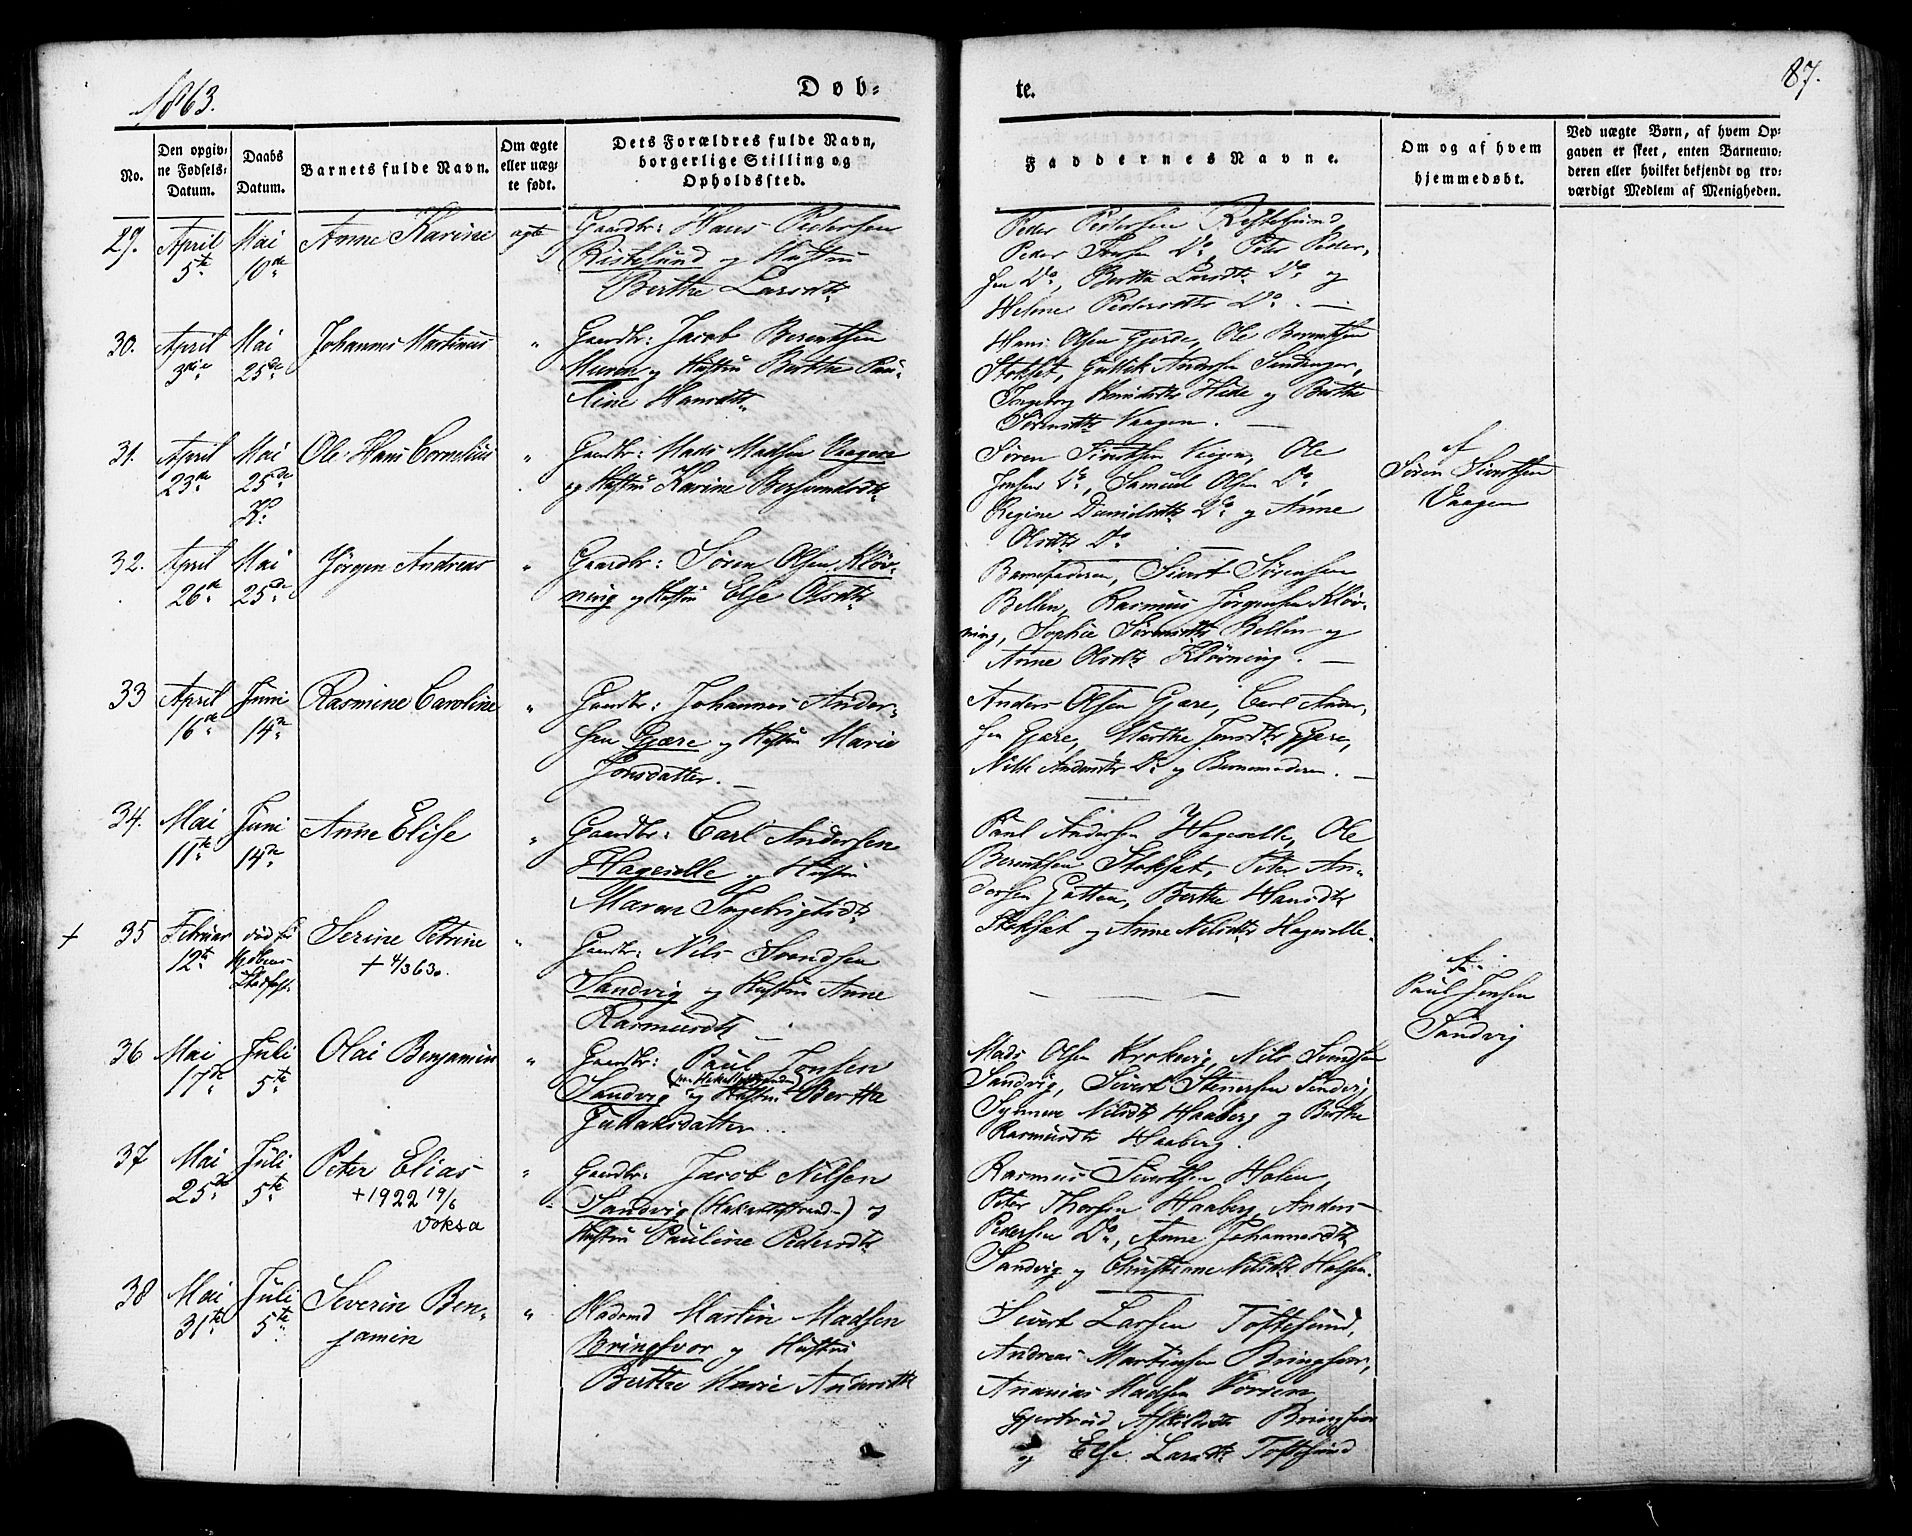 1863.
Døb-
te.
87.
No.
Den opgiv-
ne Fødsels-
Datum.
Daabs
Datum.
Barnets fulde Navn.
Om ægte
eller uæg-
te født.
Dets Forældres fulde Navn,
borgerlige Stilling og
Opholdssted.
Faddernes Navne.
Om og af hvem
hjemmedøbt.
Ved uægte Børn, af hvem Op-
gaven er skeet, enten Barnemo-
deren eller hvilket bekjendt og tro-
værdigt Medlem af Menigheden.
29. April 5te Mai 10de Anne Karine ægte
Gaardbr: Hans Pedersen
Ristesund og Hustru
Berthe Larsdtr
Peder Pedersen Ristesund,
Peder Jonsen Do, Peter Peder-
sen Do, Berthe Larsdtr Do og
Helene Pedersdtr Do. —
30. April 3die Mai 25de Johannes Martinus "
Gaardbr: Jacob Berentsen
Muren og Hustru Berthe Pau-
line Hansdtr
Hans Olsen Gjerde, Ole Berentsen
Stokset, Andersen
Ingeborg Hide og Berthe
Sørensdtr Vaagen. —
31. April 23de Mai 25de K: Ole Hans Cornelius "
Gaardbr: Mads Madsen Vaagen
og Hustru Karine
Søren Sivertsen Vaagen, Ole
Jensen Do, Samuel Olsen Do,
Regine Danielsdtr Do og Anne
Olsdtr Do
af
Søren Sivertsen
Vaagen
32. April 26de Mai 25de Jørgen Andreas "
Gaardbr: Søren Olsen Kløv-
ning og Hustru Else Olsdtr
Barnefaderen, Sivert Sørensen
Bellen, Rasmus Jørgensen Kløv-
ning, Sophie Sørensdtr Bellen og
Anne Olsdtr Kløvning. —
33 April 16de Juni 14de Rasmine Caroline "
Gaardbr: Johannes Ander-
sen Gjære og Hustru Marie
Jonsdatter. —
Anders Olsen Gjære, Carl Ander-
sen Gjære, Marthe Jensdtr Gjære,
Andersdtr Do og Barnemoderen. —
34. Mai 11te Juni 14de Anne Elise "
Gaardbr: Carl Andersen
Hageselle og Hustru
Maren Ingebrigtsdtr
Paul Andersen Hageselle, Ole
Berentsen Stokset, Peter An-
dersen Gotten, Berthe Hansdtr
Stokset og Anne Nilsdtr Hageselle.
+ 35 Februar 12te død før
Serine Petrine "
+ 4/3 63.
Gaardbr: Nils Svendsen
Sandvig og Hustru Anne
Rasmusdtr —
af
Paul Jonsen
Sandvig
36 Mai 17te Juli 5te Olai Benjamin "
Gaardbr: Paul Jonsen
Sandvig og Hustru Berthe
datter.
Mads Olsen Krokevig, Nils Svendsen
Sandvig, Sivert Steinersen Sandvig,
Synneve Nilsdtr Haaberg og Berthe
Rasmusdtr Haaberg.
37 Mai 25de Juli 5te Peter Elias "
+ 1922 19/6
Voksa
Gaardbr: Jacob Nilsen
Sandvig og
Hustru Pauline Pedersdtr
Rasmus Sivertsen Holen,
Peter Thorsen Haaberg, Anders
Pedersen Do, Anne Johannesdtr
Sandvig og Christiane Nilsdtr Holsen.
38 Mai 31te Juli 5te Severin Ben-
jamin "
Martin Madsen
Bringsvor og Hustru
Berthe Marie Andersdtr
Sivert Larsen Toftesund,
Andreas Martinsen Bringsvor,
Ananias Madsen Vorren,
Gjertrud Bringsvor
og Else Larsdtr Toftesund